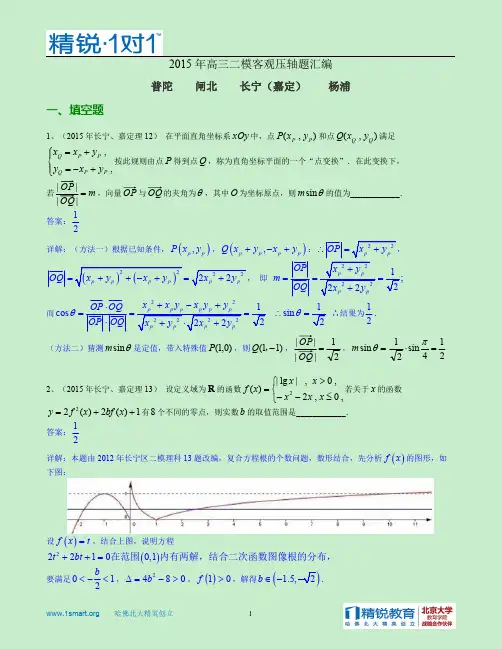 精锐·1对1™
2015 年高三二模客观压轴题汇编
普陀 闸北 长宁（嘉定） 杨浦
一、填空题
1、（2015 年长宁、嘉定理 12） 在平面直角坐标系 xOy 中，点 P(x_P , y_P) 和点 Q(x_Q , y_Q) 满足
{ x_Q = x_P + y_P , y_Q = −x_P + y_P , 按此规则由点 P 得到点 Q，称为直角坐标平面的一个“点变换”．在此变换下，
若 |OP|/|OQ| = m，向量 OP 与 OQ 的夹角为 θ，其中 O 为坐标原点，则 m sin θ 的值为____________．
答案：1/2
详解：（方法一）根据已知条件，P(x_p, y_p)，Q(x_p + y_p, −x_p + y_p)；∴ |OP| = √(x_p² + y_p²)，
|OQ| = √((x_p + y_p)² + (−x_p + y_p)²) = √(2x_p² + 2y_p²)， 即 m = |OP|/|OQ| = √(x_p² + y_p²)/√(2x_p² + 2y_p²) = 1/√2；
而 cos θ = OP·OQ/(|OP|·|OQ|) = (x_p² + x_p y_p − x_p y_p + y_p²)/(√(x_p² + y_p²)·√(2x_p² + 2y_p²)) = 1/√2 ∴ sin θ = 1/√2 ∴结果为 1/2．
（方法二）猜测 m sin θ 是定值，带入特殊值 P(1,0)，则 Q(1,−1)，|OP|/|OQ| = 1/√2，m sin θ = 1/√2 · sin π/4 = 1/2
2、（2015 年长宁、嘉定理 13） 设定义域为 R 的函数 f(x) = { |lg x| , x > 0 , −x² − 2x , x ≤ 0 , 若关于 x 的函数
y = 2f²(x) + 2bf(x) + 1 有 8 个不同的零点，则实数 b 的取值范围是____________．
答案：1/2
详解：本题由 2012 年长宁区二模理科 13 题改编，复合方程根的个数问题，数形结合，先分析 f(x) 的图形，如
下图：
设 f(x) = t，结合上图，说明方程
2t² + 2bt + 1 = 0 在范围 (0,1) 内有两解，结合二次函数图像根的分布，
要满足 0 < −b/2 < 1，Δ = 4b² − 8 > 0，f(1) > 0，解得 b ∈ (−1.5, −√2)．
www.1smart.org 哈佛北大精英创立 1
精锐教育
北京大学
教育学院
战略合作伙伴